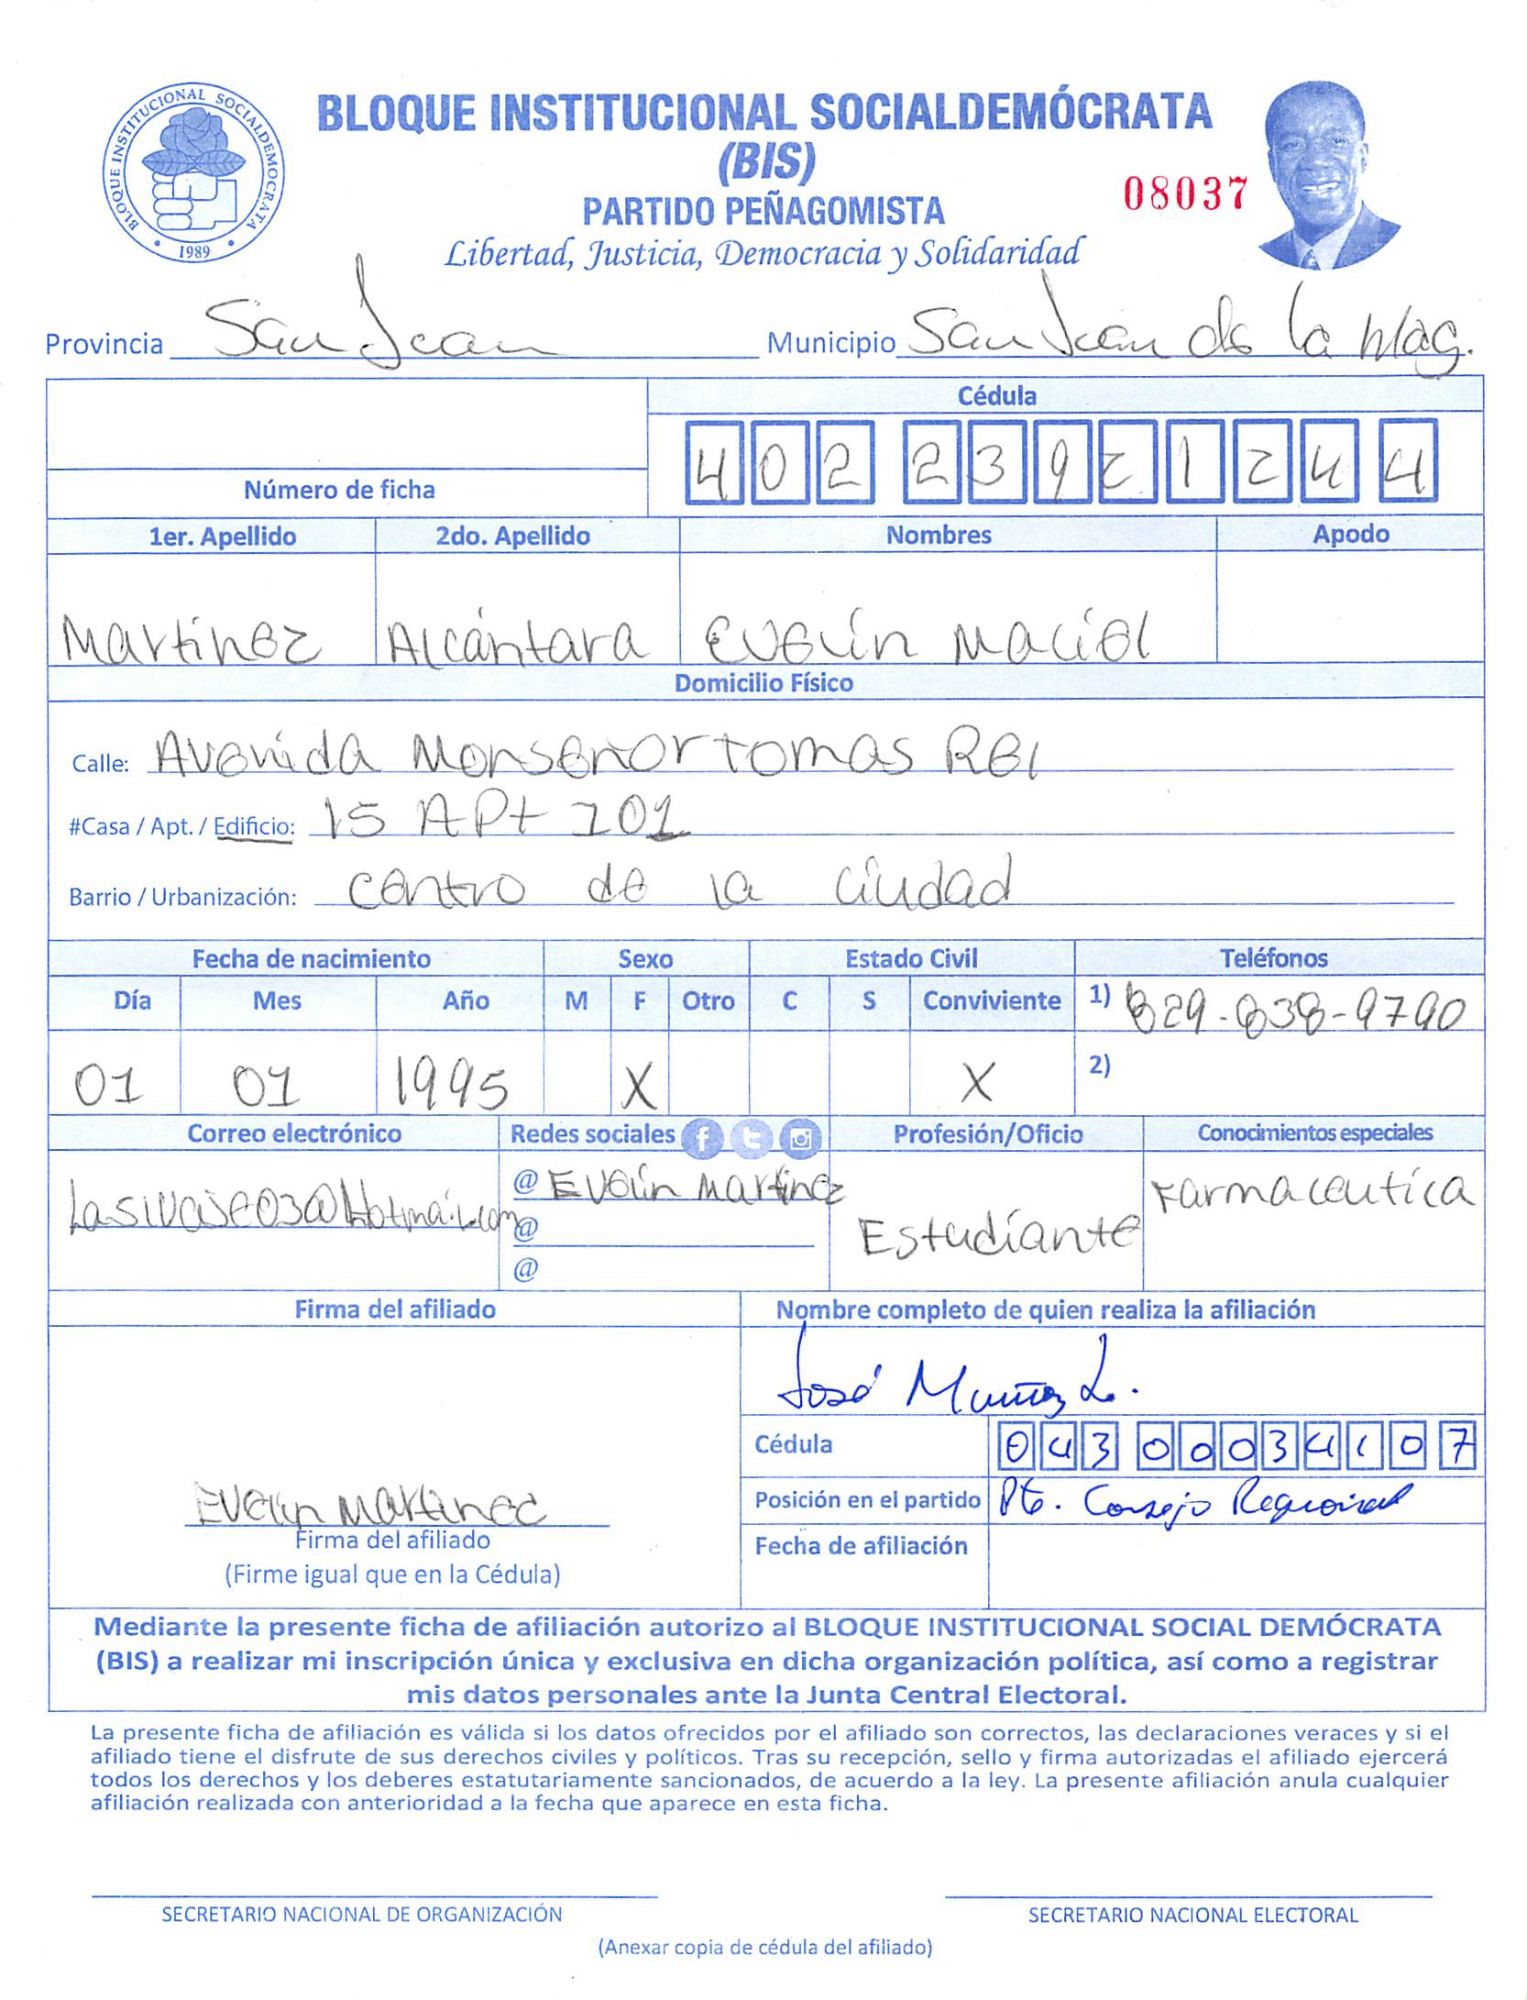 BLOQUE INSTITUCIONAL SOCIALDEMÓCRATA
(BIS)
PARTIDO PEÑAGOMISTA
Libertad, Justicia, Democracia y Solidaridad
08037
BLOQUE INSTITUCIONAL SOCIALDEMOCRATA
• 1989 •
Provincia San Juan Municipio San Juan de la Mag.
Cédula
402 2392124 4
Número de ficha
1er. Apellido 2do. Apellido Nombres Apodo
Martinez Alcántara Evelin Maciel
Domicilio Físico
Calle: Avenida Monseñor tomas Rei
#Casa / Apt. / Edificio: 15 APt 101
Barrio / Urbanización: centro de la ciudad
Fecha de nacimiento Sexo Estado Civil Teléfonos
Día Mes Año M F Otro C S Conviviente 1) 829-838-9790
01 01 1995 X X 2)
Correo electrónico Redes sociales Profesión/Oficio Conocimientos especiales
@ Evelin Martinez Estudiante Farmaceutica
@
@
Firma del afiliado Nombre completo de quien realiza la afiliación
José Muñoz L.
Cédula 043 0003410 7
Posición en el partido Pte. Consejo Regional
Evelin Martinez
Firma del afiliado
(Firme igual que en la Cédula)
Fecha de afiliación
Mediante la presente ficha de afiliación autorizo al BLOQUE INSTITUCIONAL SOCIAL DEMÓCRATA
(BIS) a realizar mi inscripción única y exclusiva en dicha organización política, así como a registrar
mis datos personales ante la Junta Central Electoral.
La presente ficha de afiliación es válida si los datos ofrecidos por el afiliado son correctos, las declaraciones veraces y si el
afiliado tiene el disfrute de sus derechos civiles y políticos. Tras su recepción, sello y firma autorizadas el afiliado ejercerá
todos los derechos y los deberes estatutariamente sancionados, de acuerdo a la ley. La presente afiliación anula cualquier
afiliación realizada con anterioridad a la fecha que aparece en esta ficha.
SECRETARIO NACIONAL DE ORGANIZACIÓN SECRETARIO NACIONAL ELECTORAL
(Anexar copia de cédula del afiliado)